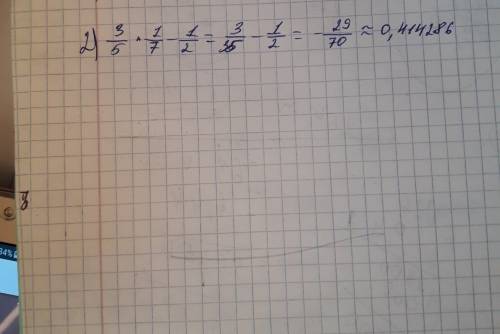 2) 3/5 · 1/7 - 1/2 = 3/35 - 1/2 = - 29/70 ≈ 0,414286
34%